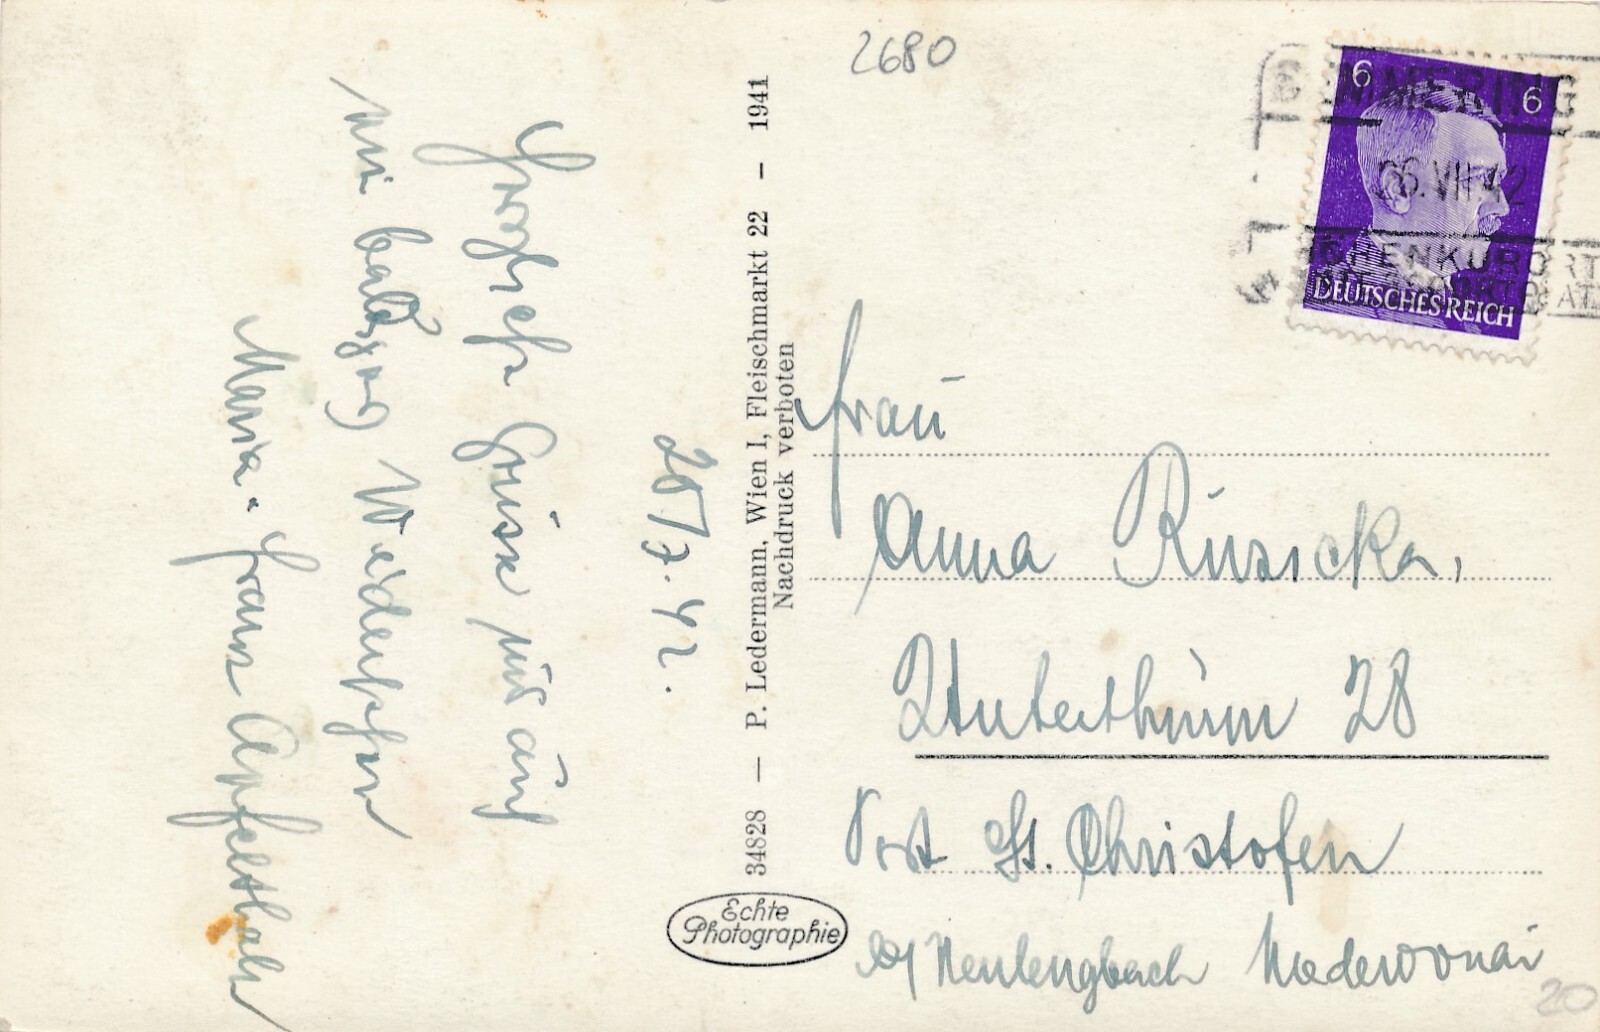 2680
6 6
SEMMERING
26.VII.42
HÖHENKURORT
DEUTSCHES REICH
26/7.42.
Herzliche Grüsse und auf
ein baldiges Wiedersehen
Maria. Franz Apfelthaler
34828 — P. Ledermann, Wien I, Fleischmarkt 22 — 1941
Nachdruck verboten
Echte
Photographie
Frau
Anna Rusicka,
Unterthurm 28
Post St. Christofen
b/ Neulengbach Niederdonau
20